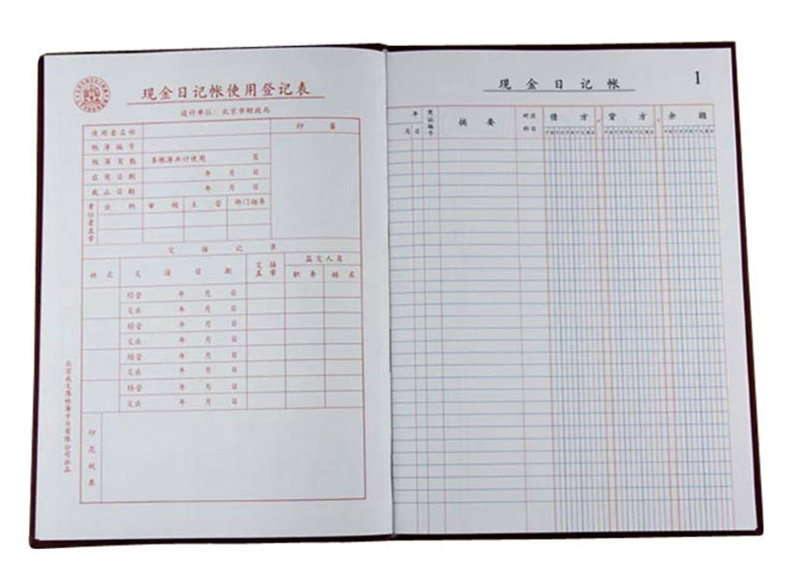 现金日记帐使用登记表
设计单位：北京市财政局
使用者名称
印 鉴
帐簿编号
帐簿页数 本帐簿共计使用 页
启用日期 年 月 日
截止日期 年 月 日
责任者盖章
出 纳 审 核 主 管 部门领导
交 接 记 录
姓 名 交 接 日 期 交接盖章 监交人员
职 务 姓 名
经管 年 月 日
交出 年 月 日
经管 年 月 日
交出 年 月 日
经管 年 月 日
交出 年 月 日
经管 年 月 日
交出 年 月 日
印花税票
现 金 日 记 帐
1
年 凭证编号 摘 要 对应科目 借 方 √ 贷 方 √ 余 额
月 日